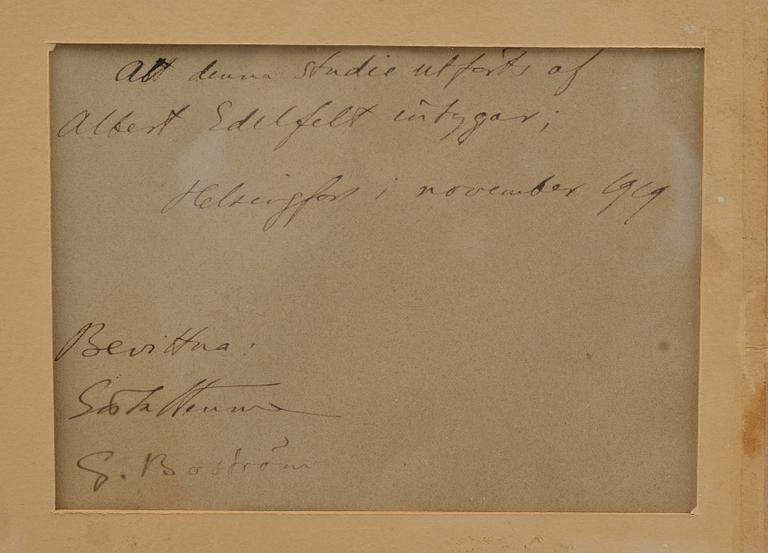 Att denna studie utförts af
Albert Edelfelt intygar;
Helsingfors i november 1919
Bevittna:
Gösta
G. Boström